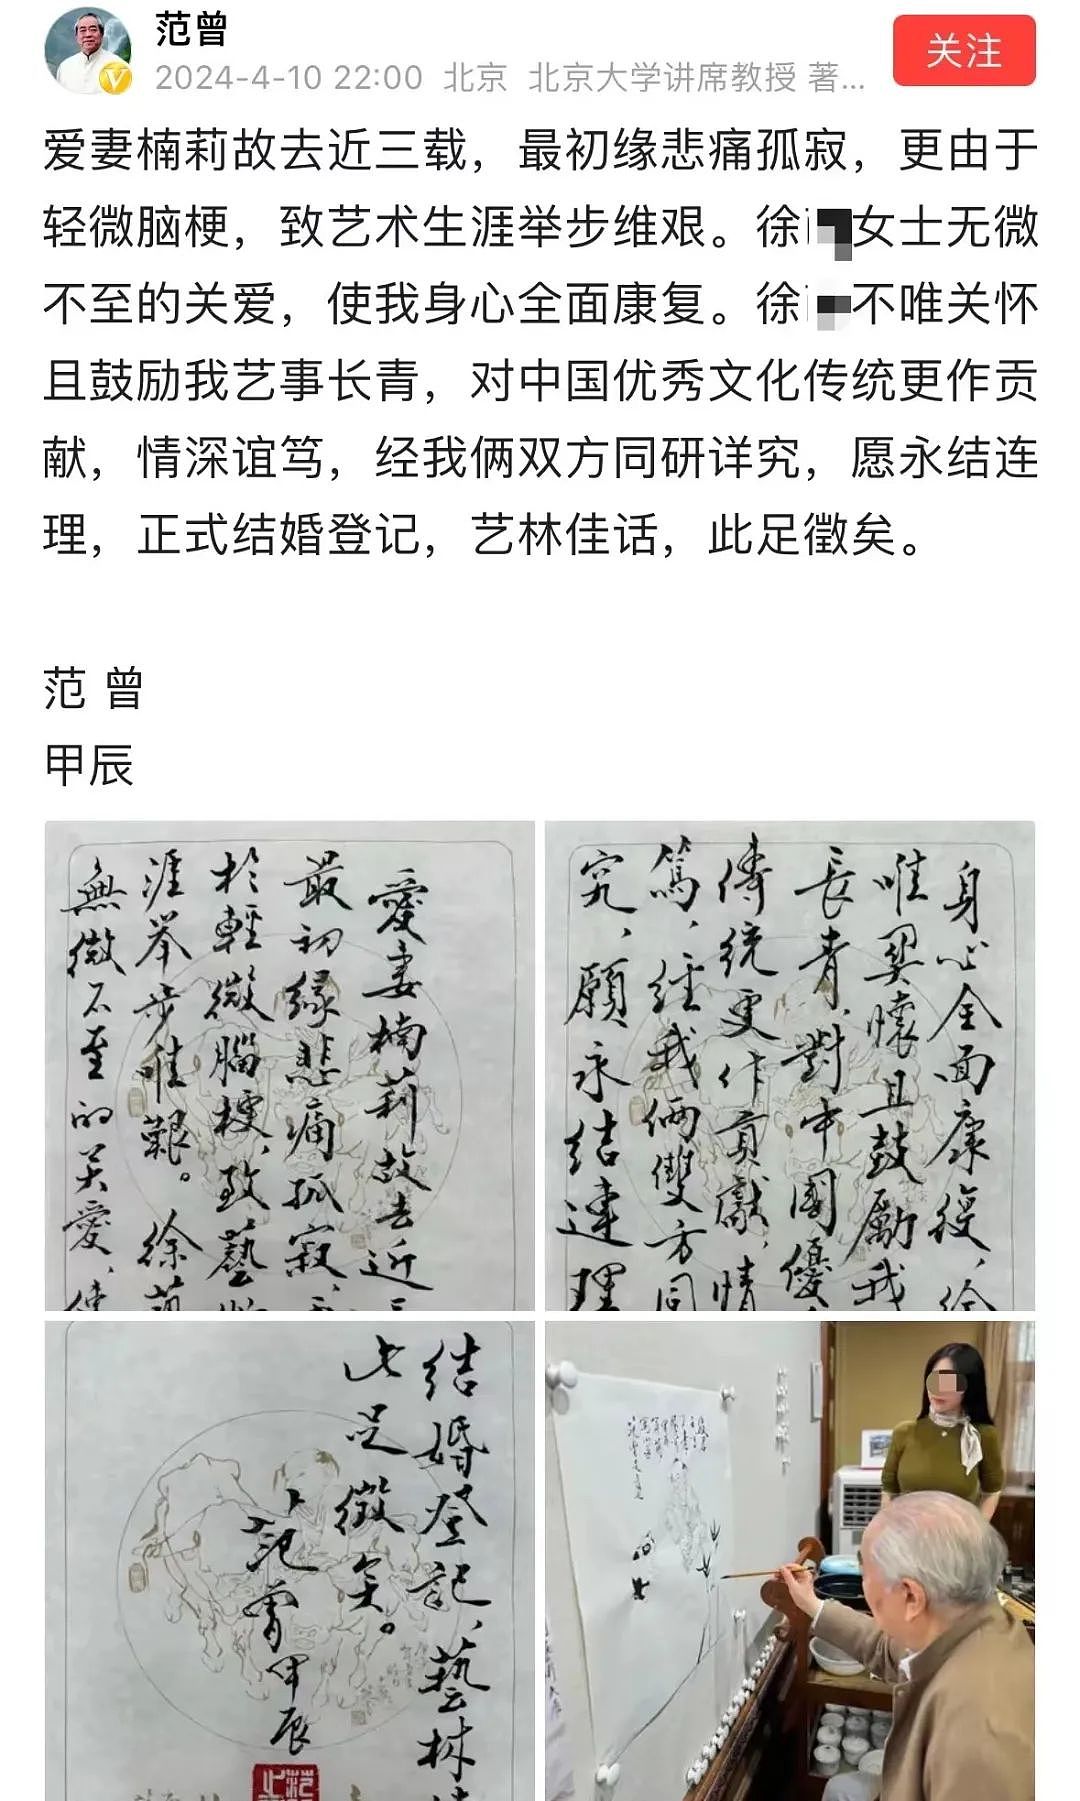 范曾
2024-4-10 22:00 北京 北京大学讲席教授 著...
关注
爱妻楠莉故去近三载，最初缘悲痛孤寂，更由于
轻微脑梗，致艺术生涯举步维艰。徐 女士无微
不至的关爱，使我身心全面康复。徐 不唯关怀
且鼓励我艺事长青，对中国优秀文化传统更作贡
献，情深谊笃，经我俩双方同研详究，愿永结连
理，正式结婚登记，艺林佳话，此足徵矣。
范 曾
甲辰
愛妻楠莉故去近
最初缘悲痛孤寂，
於輕微腦梗，致藝
涯举步唯艱。徐
無微不至的关愛，
身心全面康復，
唯關懷且鼓勵我
長青，對中國優
傳統更作貢獻，情
篤，经我俩雙方同
究，願永结連理
结婚登記，藝林
此足徵矣。
范曾甲辰